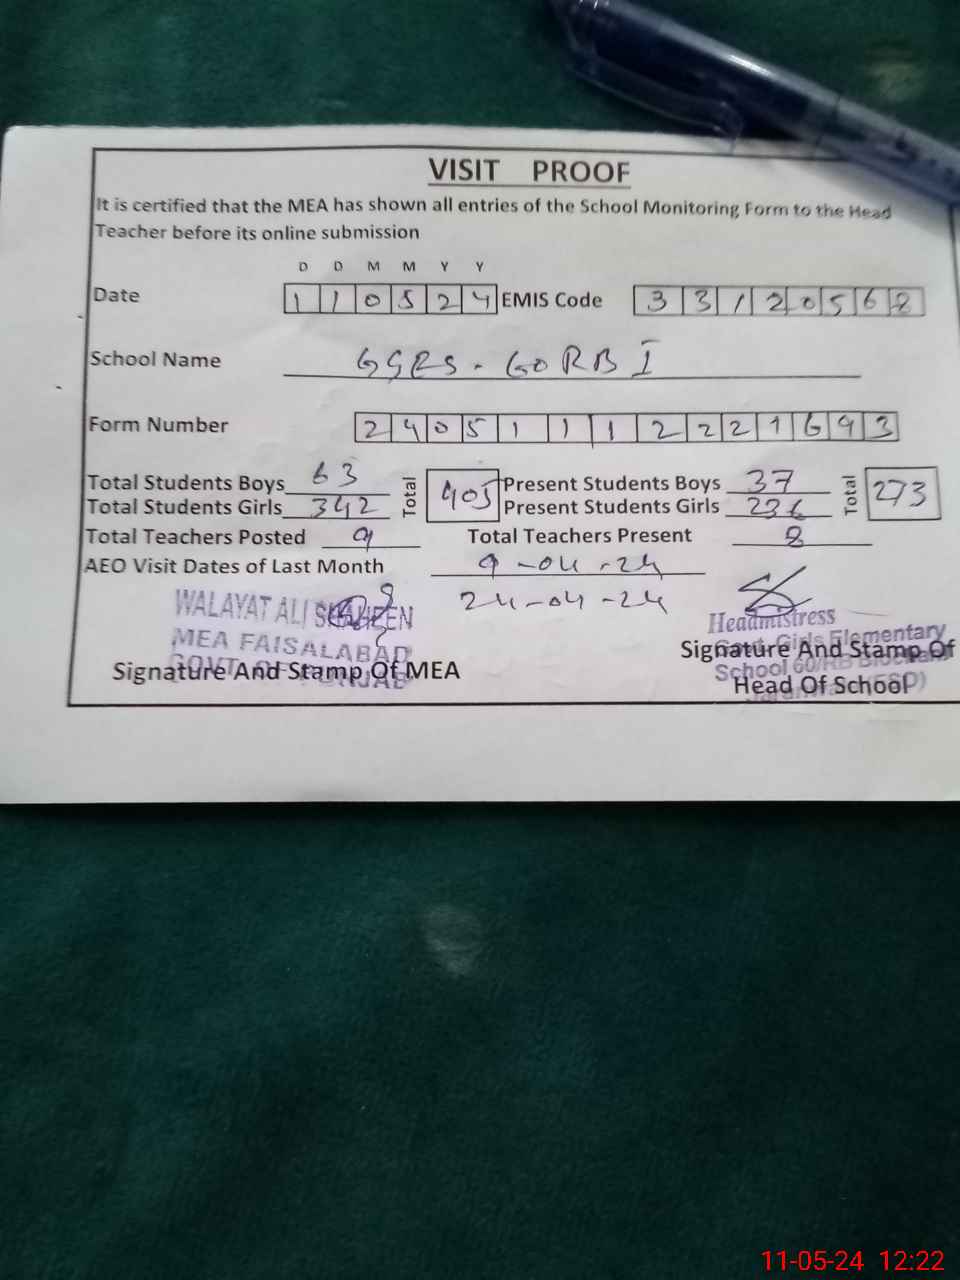 VISIT PROOF
It is certified that the MEA has shown all entries of the School Monitoring Form to the Head
Teacher before its online submission
D D M M Y Y
Date 1 1 0 5 2 4 EMIS Code 3 3 1 2 0 5 6 8
School Name GGES - 60 RB I
Form Number 2 4 0 5 1 1 1 2 2 2 1 6 9 3
Total Students Boys 63 Total 405 Present Students Boys 37 Total 273
Total Students Girls 342 Present Students Girls 236
Total Teachers Posted 9 Total Teachers Present 8
AEO Visit Dates of Last Month 9-04-24
24-04-24
WALAYAT ALI SHAHEEN
MEA FAISALABAD
GOVT OF PUNJAB
Signature And Stamp Of MEA
Headmistress
Govt. Girls Elementary
School 60/RB
Signature And Stamp Of
Head Of School
11-05-24 12:22